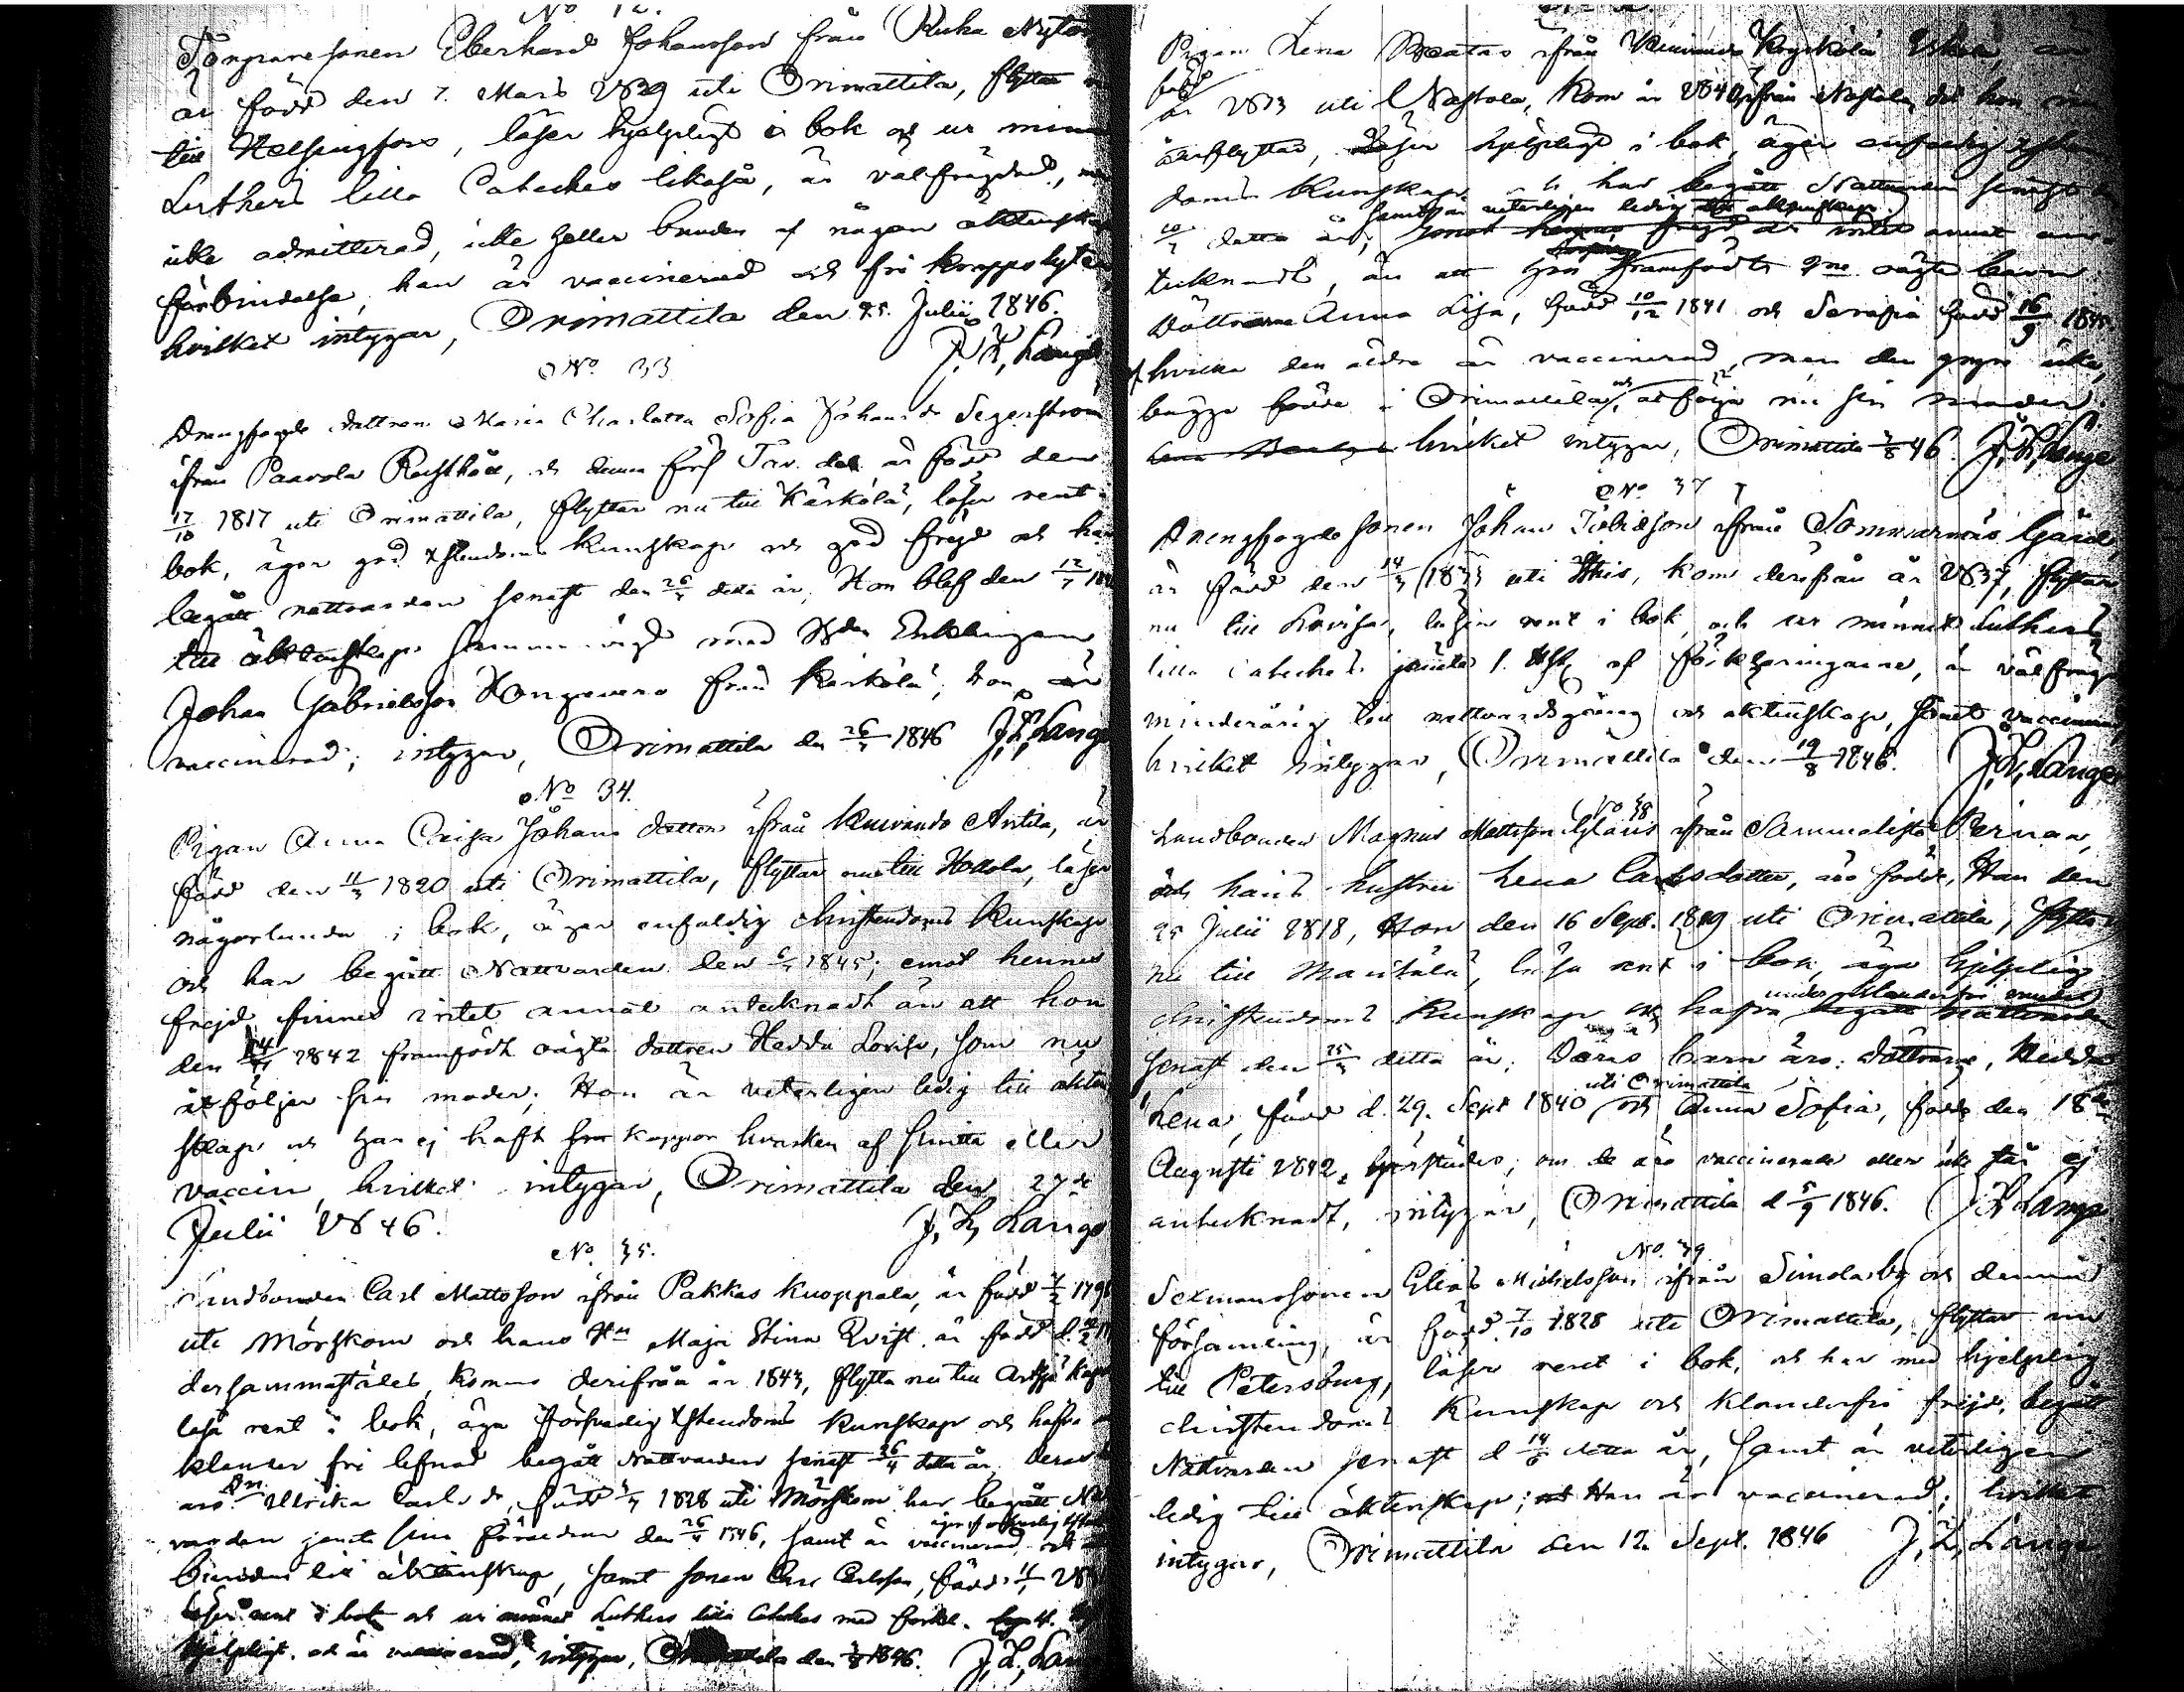 Torparesonen Eberhard Johansson från
är född den 7. Mars 1829 uti Orimattila, flyttar
till Helsingfors, läser hjelpligt i bok och ur minnet
Luthers lilla Cateches likaså, är välfrägdad,
icke admitterad, icke heller bunden af någon äktenskaps
förbindelse, han är vaccinerad och fri kroppslyten
hvilket intygar, Orimattila den 25. Julii 1846.
J. L. Lange
No. 33
Drengfogde dottren Maria Charlotta Sofia Johansd. Segerström
ifrån Paavola Rusthåll, och denna förs är född den
17/10 1817 uti Orimattila, flyttar nu till Kärkölä, läser rent
bok, äger god Xstendoms kunskap och god fräjd och har
begått nattvarden senast den 26/7 detta år, Hon blef den 12/7
till äktenskap sammanvigd med
Johan Gabrielsson från Kärkölä, hon är
vaccinerad; intygar, Orimattila den 26/7 1846 J. L. Lange
No 34.
Pigan Anna Caisa Johans dotter ifrån Kuivando Antila, är
född den 11/3 1820 uti Orimattila, flyttar nu till Hollola, läser
någorlunda i bok, äger enfaldig christendoms kunskap
och har begått Nattvarden den 6/7 1845; emot hennes
frejd finnes intet annat antecknadt än att hon
den 1842 framfödt oägta dottren Hedda Lovisa, som nu
åtföljer sin moder; Hon är veterligen ledig till äkten
skap och har ej haft koppor hvarken af smitta eller
vaccin, hvilket intygar, Orimattila den 27de
Julii 1846. J. L. Lange
No. 35.
Landbonden Carl Mattsson ifrån Pakkas Kuoppala, är född
uti Mörskom och hans Hu Maja Stina Qvist är född d.
dersammastädes, komne derifrån år 1843, flytta nu till Artsjö
läsa rent i bok, äga försvarlig Xstendoms kunskap och hafva
klander fri lefnad begått Nattvarden senast 26/4 detta år,
Ulrika Carlsd., född 1828 uti Mörskom har begått
varden jemte sina föräldrar den 26/4 1846, samt är vaccinerad och
till äktenskap, samt sonen Carl Carlsson, född
läser rent i bok och ur minnet Luthers lilla Cateches med förkl.
hjelpligt och är vaccinerad, intygar, Orimattila den 1846. J. L. Lange
Pigan Lena ifrån Kuivando
född
år 1813 uti Nastola, kom år ifrån Nastola, dit hon nu
återflyttar, läser hjelpligt i bok, äger enfaldig Xsten
doms kunskap och har begått Nattvarden senast
samt är veterligen ledig till äktenskap
detta år; emot hennes fräjd är intet annat an-
tecknadt, än att hon framfödt 2ne oägta barn
Döttrarna Anna Lisa, född 10/12 1841 och Serafia född 16/9 1845.
hvilka den äldre är vaccinerad, men den yngre icke,
bägge födde i Orimattila, och åtfölja nu sin moder.
hvilket intygar, Orimattila 46. J. L. Lange
No. 37
Drengfogde sonen Johan ifrån Sommarnäs Gård,
är född den 14/3 1833 uti kom derifrån år 1837, flyttar
nu till Lovisa, läser rent i bok, och ur minnet Luthers
lilla Cateches jemte af förklaringarne, är välfrägdad
minderårig till nattvardsgång och äktenskap, samt vaccinerad,
hvilket intygar, Orimattila den 19/8 1846. J. L. Lange
No 38
Landbonden Magnus Mattsson ifrån Sammalisto Pernaa,
och hans hustru Lena Carlsdotter, äro födde, Han den
25 Julii 1818, Hon den 16 Sept. 1819 uti Orimattila, flytta
nu till Mäntsälä, läsa rent i bok, äga hjelplig
christendoms kunskap och hafva under klanderfri vandel begått Nattvarden
senast den 25/3 detta år; Deras barn äro: döttrarne, Hedda
Lena, född d. 29. Sept 1840 uti Orimattila och Anna Sofia, född den 18de
Augusti 1842, härstädes; om de äro vaccinerade eller icke får ej
antecknadt, intygar, Orimattila d 5/9 1846. J. L. Lange
No. 39.
Sexmanssonen Elias Michelsson ifrån Simolaby och denna
församling, är född 7/10 1828 uti Orimattila, flyttar nu
till Petersburg, läser rent i bok, och har med hjelplig
christendoms kunskap och klanderfri frejd, begått
Nattvarden senast d 14/6 detta år, samt är veterligen
ledig till äktenskap; Han är vaccinerad; hvilket
intygar, Orimattila den 12. Sept. 1846 J. L. Lange